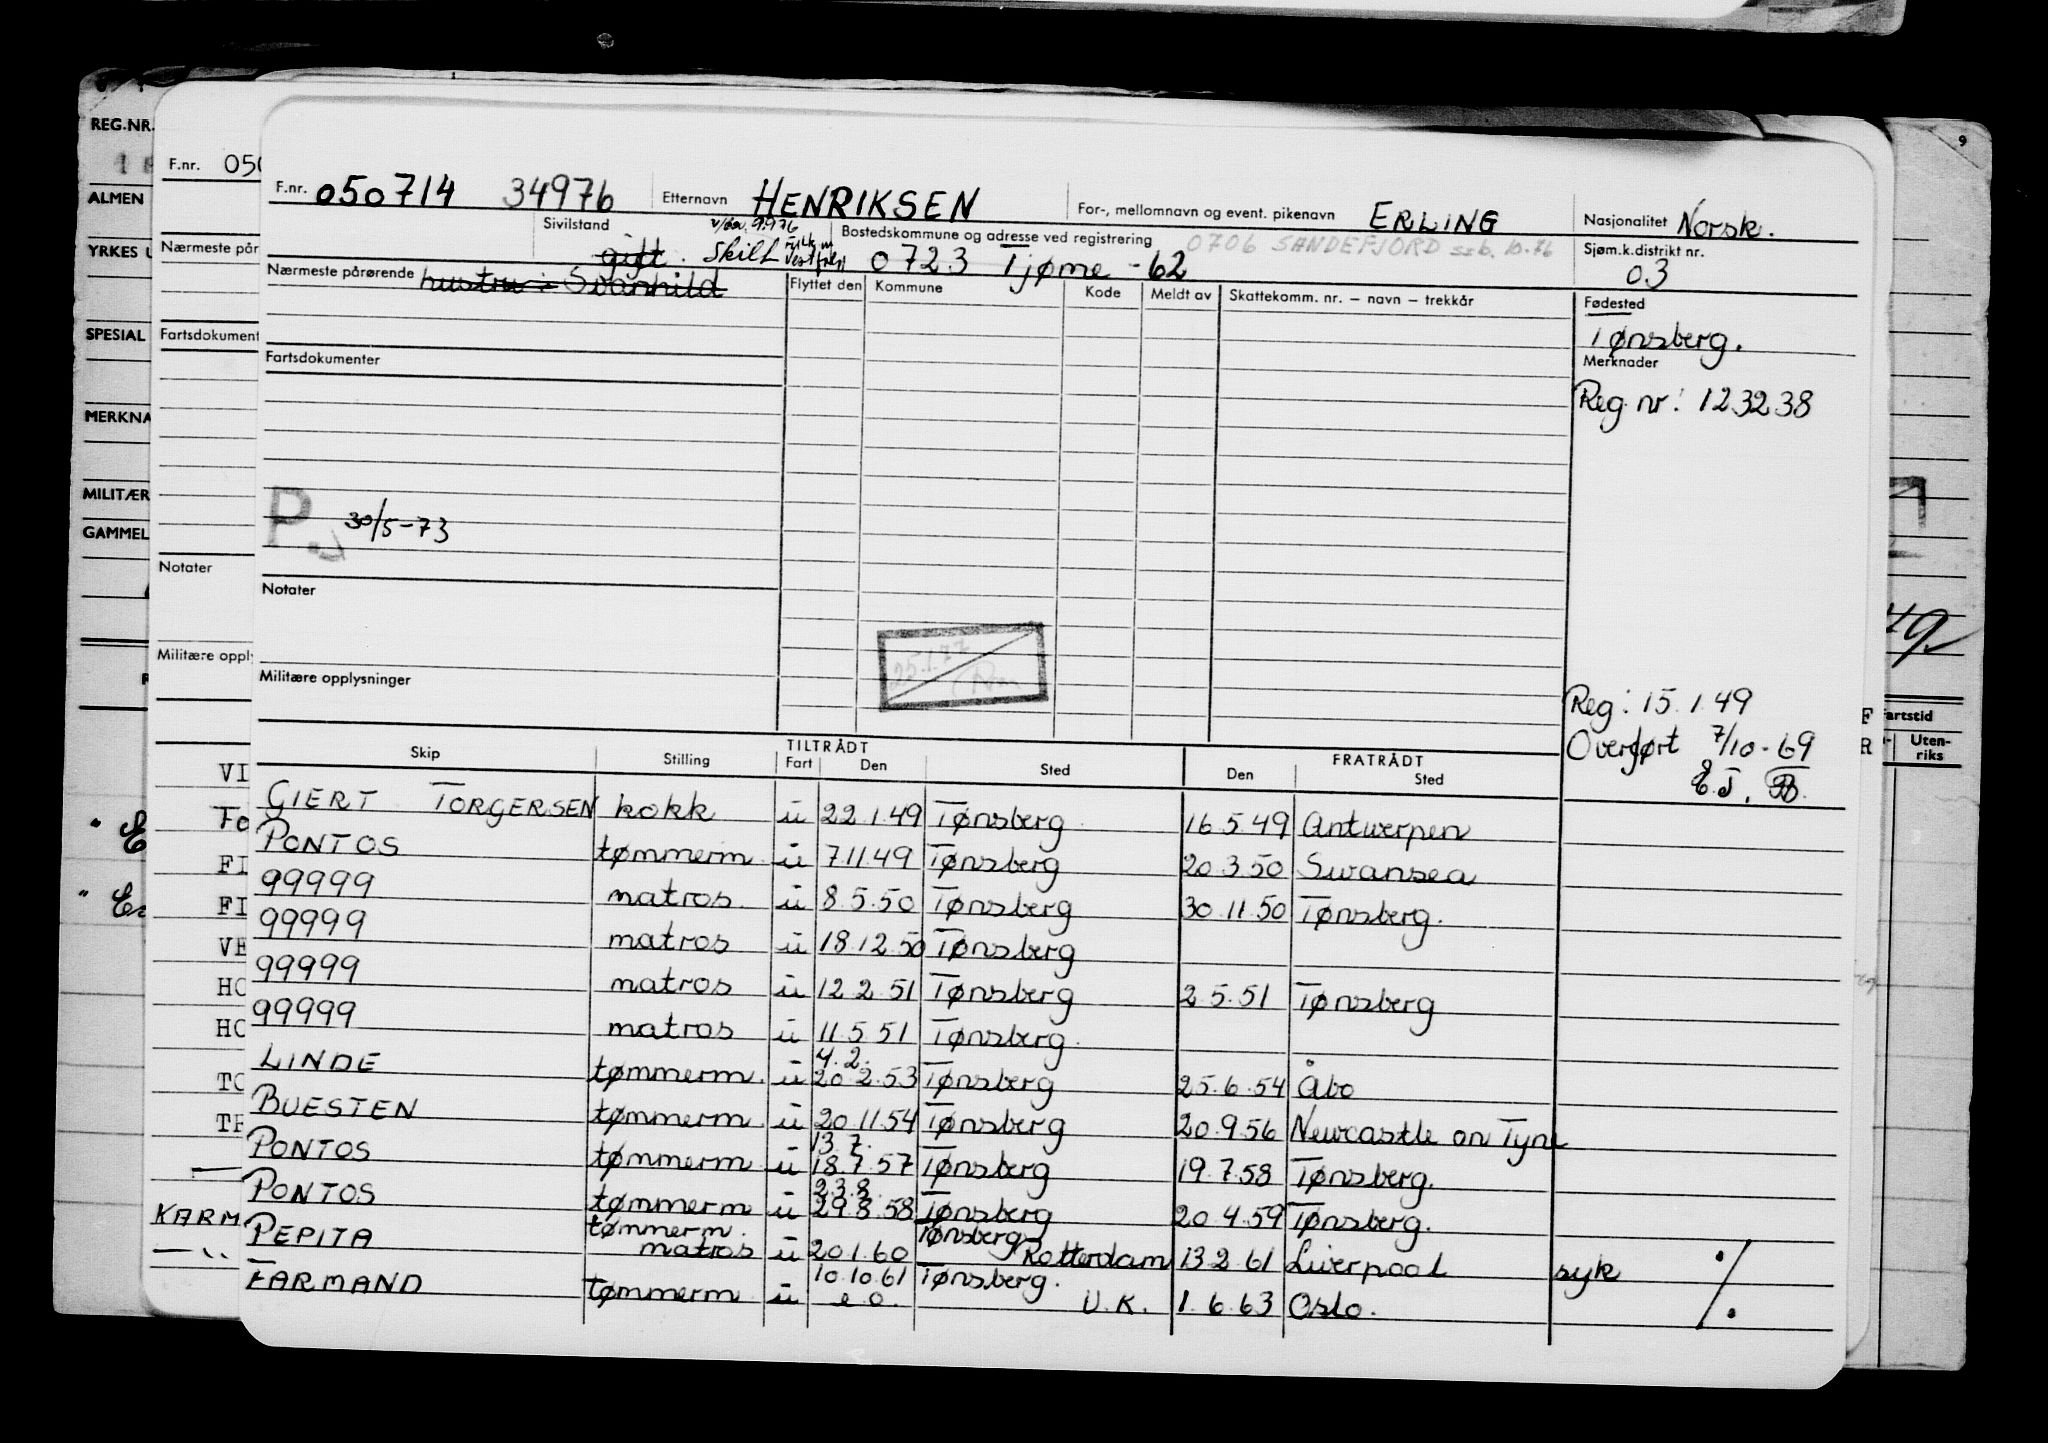 REG.NR.
9
F.nr. 050
ALMEN
YRKES U
Nærmeste pår
SPESIAL
Fartsdokument
MERKNA
MILITÆR
GAMMEL
Notater
Militære oppl
F.nr. 050714 34976 Etternavn HENRIKSEN For-, mellomnavn og event. pikenavn ERLING Nasjonalitet Norsk.
Sivilstand gift. Skilt 9.9.76 Bostedskommune og adresse ved registrering 0723 Tjøme -62 0706 SANDEFJORD ssb. 10.76 Sjøm.k.distrikt nr. 03
Nærmeste pårørende hustru: Svanhild Flyttet den Kommune Kode Meldt av Skattekomm. nr. – navn – trekkår Fødested
Tønsberg.
Fartsdokumenter Merknader
Reg. nr: 123238
P. 30/5-73
Notater
25.1.77
Militære opplysninger
Reg: 15.1.49
Overført 7/10-69
E.J.
Fartstid
Uten-
riks
TILTRÅDT FRATRÅDT
Skip Stilling Fart Den Sted Den Sted
GIERT TORGERSEN kokk u 22.1.49 Tønsberg 16.5.49 Antwerpen
PONTOS tømmerm. u 7.11.49 Tønsberg 20.3.50 Swansea
99999 matros. u 8.5.50 Tønsberg 30.11.50 Tønsberg.
99999 matros u 18.12.50 Tønsberg
99999 matros u 12.2.51 Tønsberg 2.5.51 Tønsberg
99999 matros u 11.5.51 Tønsberg.
LINDE tømmerm. u 4.2. 20.2.53 Tønsberg 25.6.54 Åbo
BUESTEN tømmerm u 20.11.54 Tønsberg 20.9.56 Newcastle on Tyne
PONTOS tømmerm u 13.7. 18.7.57 Tønsberg 19.7.58 Tønsberg.
PONTOS tømmerm u 23.8. 29.8.58 Tønsberg 20.4.59 Tønsberg.
PEPITA tømmerm. matros u 20.1.60 Tønsberg Rotterdam 13.2.61 Liverpool syk
FARMAND tømmerm u 10.10.61 e.o. Tønsberg. U.K. 1.6.63 Oslo.
VI
FI
FI
VE
HO
HO
TO
KARM